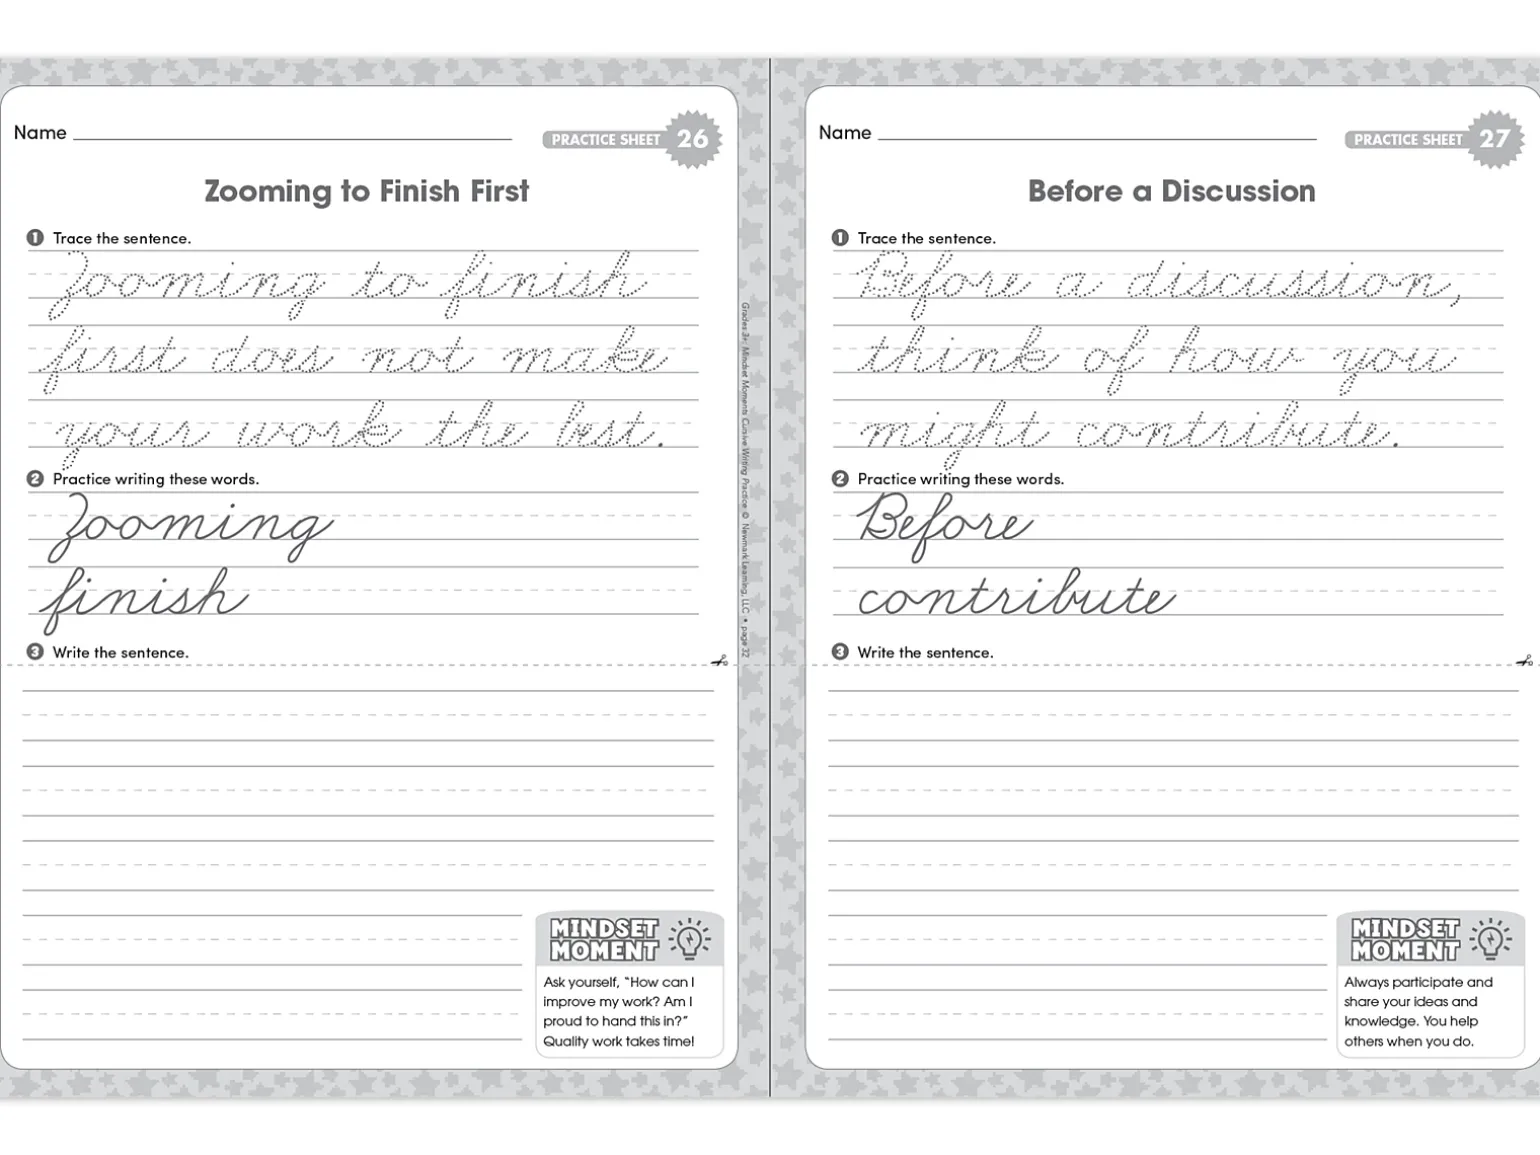 Name
PRACTICE SHEET 26
Zooming to Finish First
1 Trace the sentence.
Zooming to finish
first does not make
your work the best.
2 Practice writing these words.
Zooming
finish
3 Write the sentence.
MINDSET
MOMENT
Ask yourself, “How can I
improve my work? Am I
proud to hand this in?”
Quality work takes time!
Grades 3+: Mindset Moments Cursive Writing Practice © Newmark Learning, LLC • page 32
Name
PRACTICE SHEET 27
Before a Discussion
1 Trace the sentence.
Before a discussion,
think of how you
might contribute.
2 Practice writing these words.
Before
contribute
3 Write the sentence.
MINDSET
MOMENT
Always participate and
share your ideas and
knowledge. You help
others when you do.